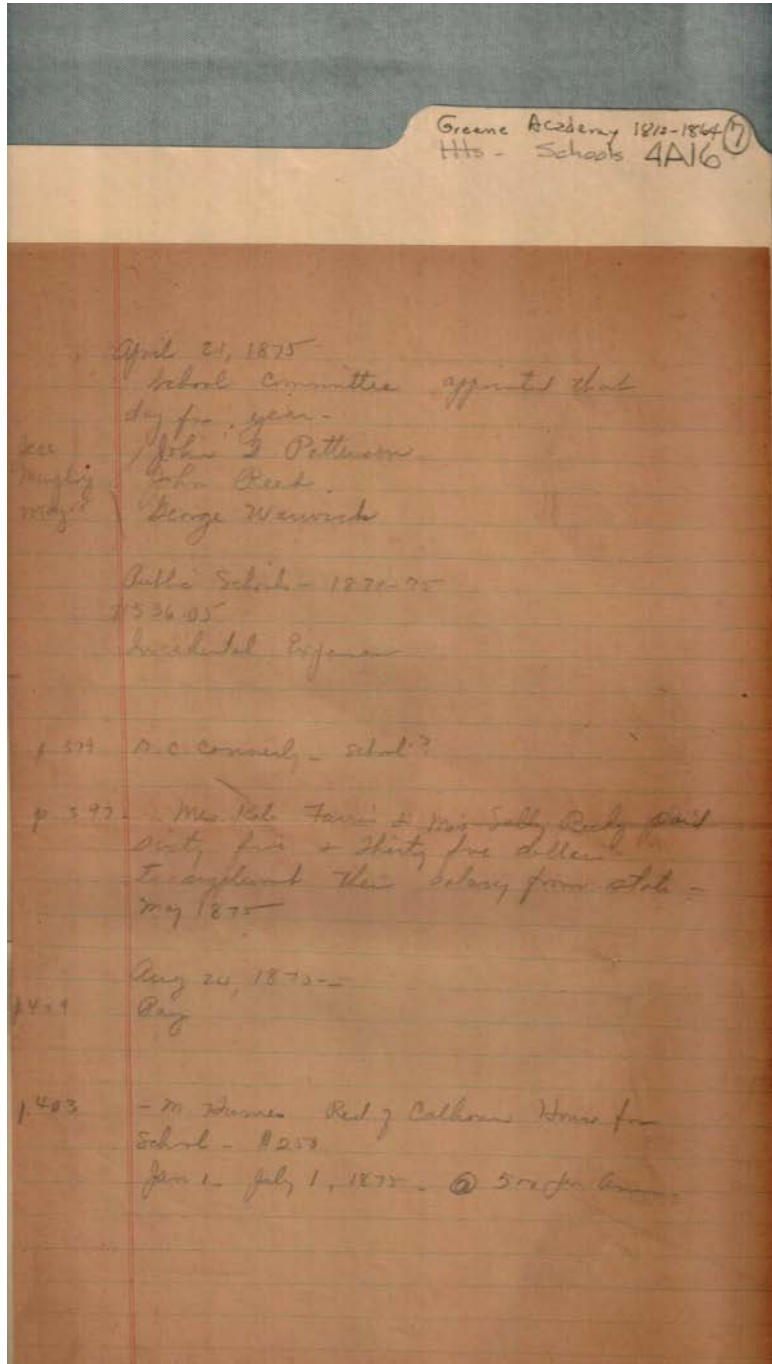 Greene Academy 1812-1864 (7)
Hts - Schools 4A16
April 21, 1875
School Committee appointed that
day for year -
John Patterson
John Reed.
George Warwick
Public Schools - 75
Incidental Expenses
D. C. Connerly - school?
p 397 - Mrs. Kate Farris & Miss Sally Reedy paid
sixty five & thirty five dollars
to supplement their salary from state -
May 1875
Aug 1875 -
Pay
p. 403 - M. Humes Calhoun House for
School - $250
Jan 1 - July 1, 1875 - @ 500 per